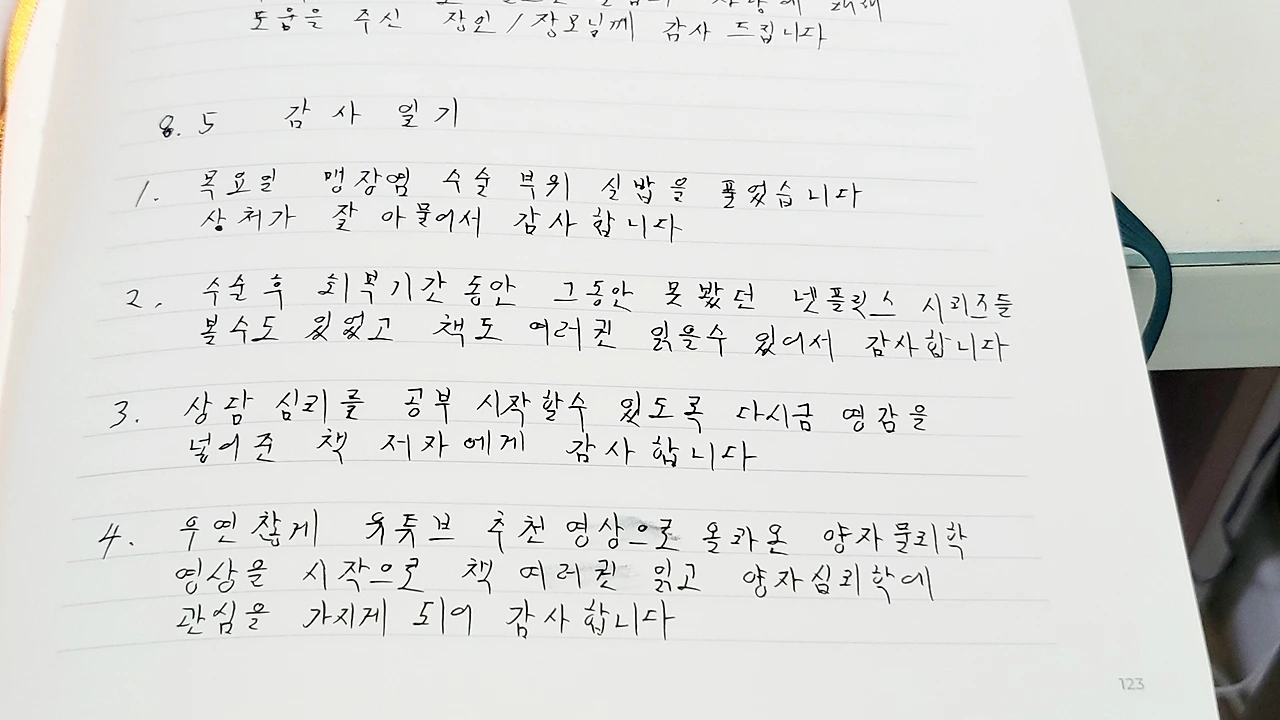 도움을 주신 장인/장모님께 감사 드립니다
8.5 감사 일기
1. 목요일 맹장염 수술 부위 실밥을 풀었습니다
상처가 잘 아물어서 감사합니다
2. 수술 후 회복기간 동안 그동안 못 봤던 넷플릭스 시리즈들
볼수도 있었고 책도 여러권 읽을수 있어서 감사합니다
3. 상담 심리를 공부 시작할수 있도록 다시금 영감을
넣어준 책 저자에게 감사합니다
4. 우연찮게 유튜브 추천 영상으로 올라온 양자물리학
영상을 시작으로 책 여러권 읽고 양자심리학에
관심을 가지게 되어 감사합니다
123